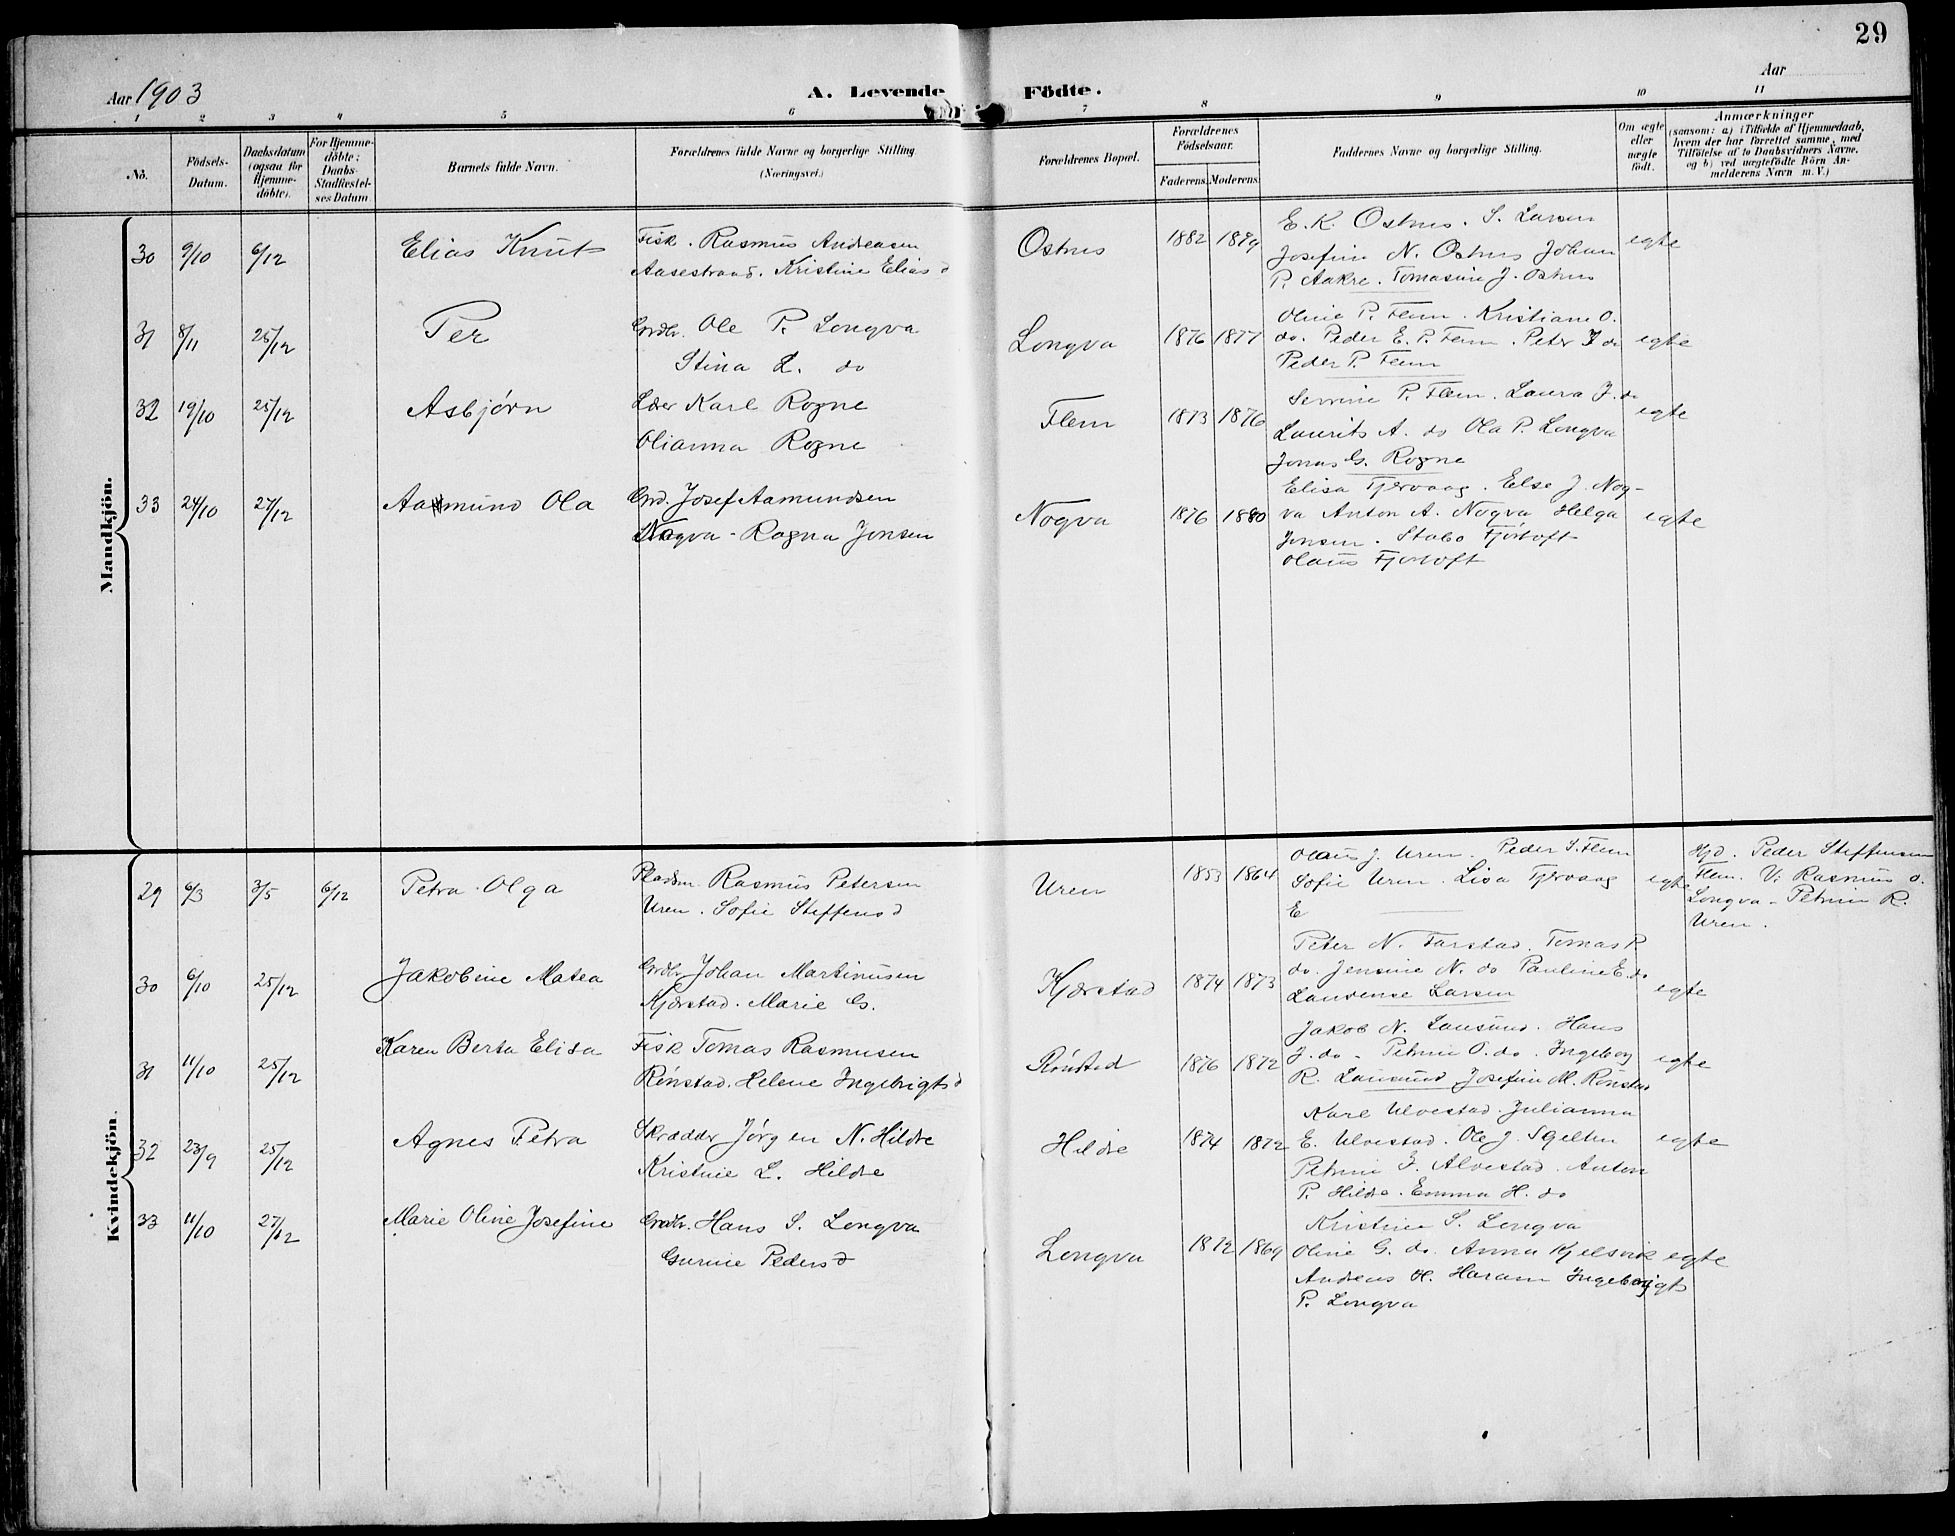 29
Aar 1903
A. Levende Födte.
Aar
1 2 3 4 5 6 7 8 9 10 11
No.
Födsels-Datum.
Daabsdatum (ogsaa for Hjemmedöbte).
For Hjemmedöbte: Daabs-Stadfæstelses Datum
Barnets fulde Navn.
Forældrenes fulde Navne og borgerlige Stilling. (Næringsvei.)
Forældrenes Bopæl.
Forældrenes Födselsaar.
Faderens
Moderens
Faddernes Navne og borgerlige Stilling.
Om ægte eller uægte födt.
Anmærkninger
(saasom: a) i Tilfælde af Hjemmedaab, hvem der har forrettet samme, med Tilföielse af to Daabsvidners Navne, og b) ved uægtefödte Börn Anmelderens Navn m. V.)
Mandkjön.
30 9/10 6/12 Elias Knut
Fisk. Rasmus Andreasen
Aasestrand. Kristine Elias d
Ostnes 1882 1879
E. K. Ostnes. S. Larsen
Josefine N. Ostnes Johan
P. Aakre. Tomasine J. Ostnes
egte
31 8/11 25/12 Per
Grdbr. Ole P. Longva
Stina L. do
Longva 1876 1877
Oline P. Flem. Kristiane O.
do. Peder E. P. Flem. Peter I do
Peder P. Flem
egte
32 19/10 25/12 Asbjörn
Lærer Karl Rogne
Olianna Rogne
Flem 1873 1876
Serine P. Flem. Laura J. do
Laurits A. do Ola P. Longva
Jonas G. Rogne
egte
33 24/10 27/12 Aamund Ola
Grd. Josef Aamundsen
Nogva - Ragna Jensen
Nogva 1876 1880
Elisa Tjervaag. Else J. Nog-
va Anton A. Nogva Helga
Jensen. Stabo Fjörtoft
Olaus Fjörtoft
egte
Kvindekjön.
29 6/3 3/5 6/12 Petra Olga
Pladsm. Rasmus Petersen
Uren. Sofie Steffens d
Uren 1853 1864
Olaus J. Uren. Peder S. Flem
Sofie Uren. Lisa Tjervaag
E
egte
Hjd. Peder Steffensen
Flem. V: Rasmus O.
Longva - Petrine R.
Uren.
30 6/10 25/12 Jakobine Matea
Grdbr Johan Martinusen
Kjærstad. Marie G.
Kjærstad 1874 1873
Peter N. Farstad. Tomas P.
do. Jensine N. do Pauline E. do
Laurense Larsen
egte
31 11/10 25/12 Karen Berta Elisa
Fisk Tomas Rasmusen
Rönstad. Helene Ingebrigts d
Rönstad 1876 1872
Jakob N. Lausund. Hans
J. do - Petrine O. do. Ingeborg
R. Lausund Josefine M. Rönstad
egte
32 23/9 25/12 Agnes Petra
Skrædder Jörgen N. Hildre
Kristine L. Hildre
Hildre 1874 1872
Karl Ulvestad. Julianna
E. Ulvestad. Ole J. Sgelten
Petrine J. Alvestad. Anton
P. Hildre. Emma H. do
egte
33 11/10 27/12 Marie Oline Josefine
Grdbr. Hans S. Longva
Gurine Peders d
Longva 1872 1869
Kristine S. Longva
Oline G. do. Anna Kjelsvik
Andreas H. Haram Ingebrigt
P. Longva
egte